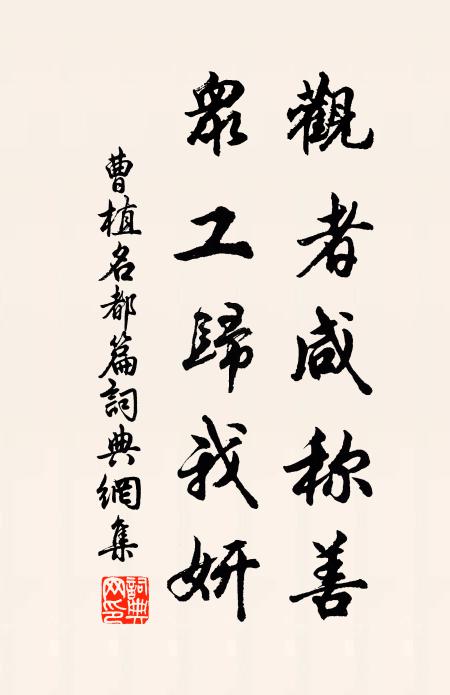 觀者咸称善
衆工歸我妍
曹植名都篇詞典網集
詞典網印